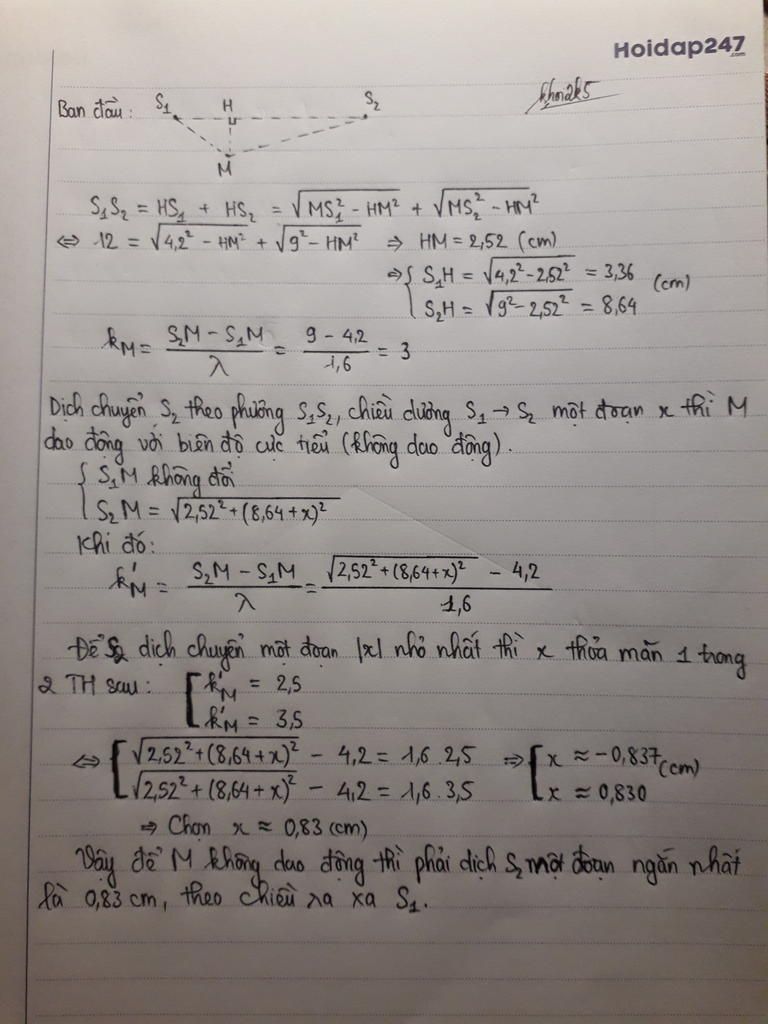 Hoidap247
.com
khoi2k5
Ban đầu: S₁ H S₂
M
S₁S₂ = HS₁ + HS₂ = √(MS₁² - HM²) + √(MS₂² - HM²)
⇔ 12 = √(4,2² - HM²) + √(9² - HM²) ⇒ HM = 2,52 (cm)
⇒ { S₁H = √(4,2² - 2,52²) = 3,36 (cm)
S₂H = √(9² - 2,52²) = 8,64
k_M = (S₂M - S₁M)/λ = (9 - 4,2)/1,6 = 3
Dịch chuyển S₂ theo phương S₁S₂, chiều dương S₁ → S₂ một đoạn x thì M
dao động với biên độ cực tiểu (không dao động).
{ S₁M không đổi
S₂M = √(2,52² + (8,64+x)²)
Khi đó:
k'_M = (S₂M - S₁M)/λ = (√(2,52² + (8,64+x)²) - 4,2)/1,6
Để S₂ dịch chuyển một đoạn |x| nhỏ nhất thì x thỏa mãn 1 trong
2 TH sau: [ k'_M = 2,5
k'_M = 3,5
⇔ [ √(2,52² + (8,64+x)²) - 4,2 = 1,6 . 2,5 ⇒ [ x ≈ -0,837 (cm)
√(2,52² + (8,64+x)²) - 4,2 = 1,6 . 3,5 x ≈ 0,830
⇒ Chọn x ≈ 0,83 (cm)
Vậy để M không dao động thì phải dịch S₂ một đoạn ngắn nhất
là 0,83 cm, theo chiều ra xa S₁.